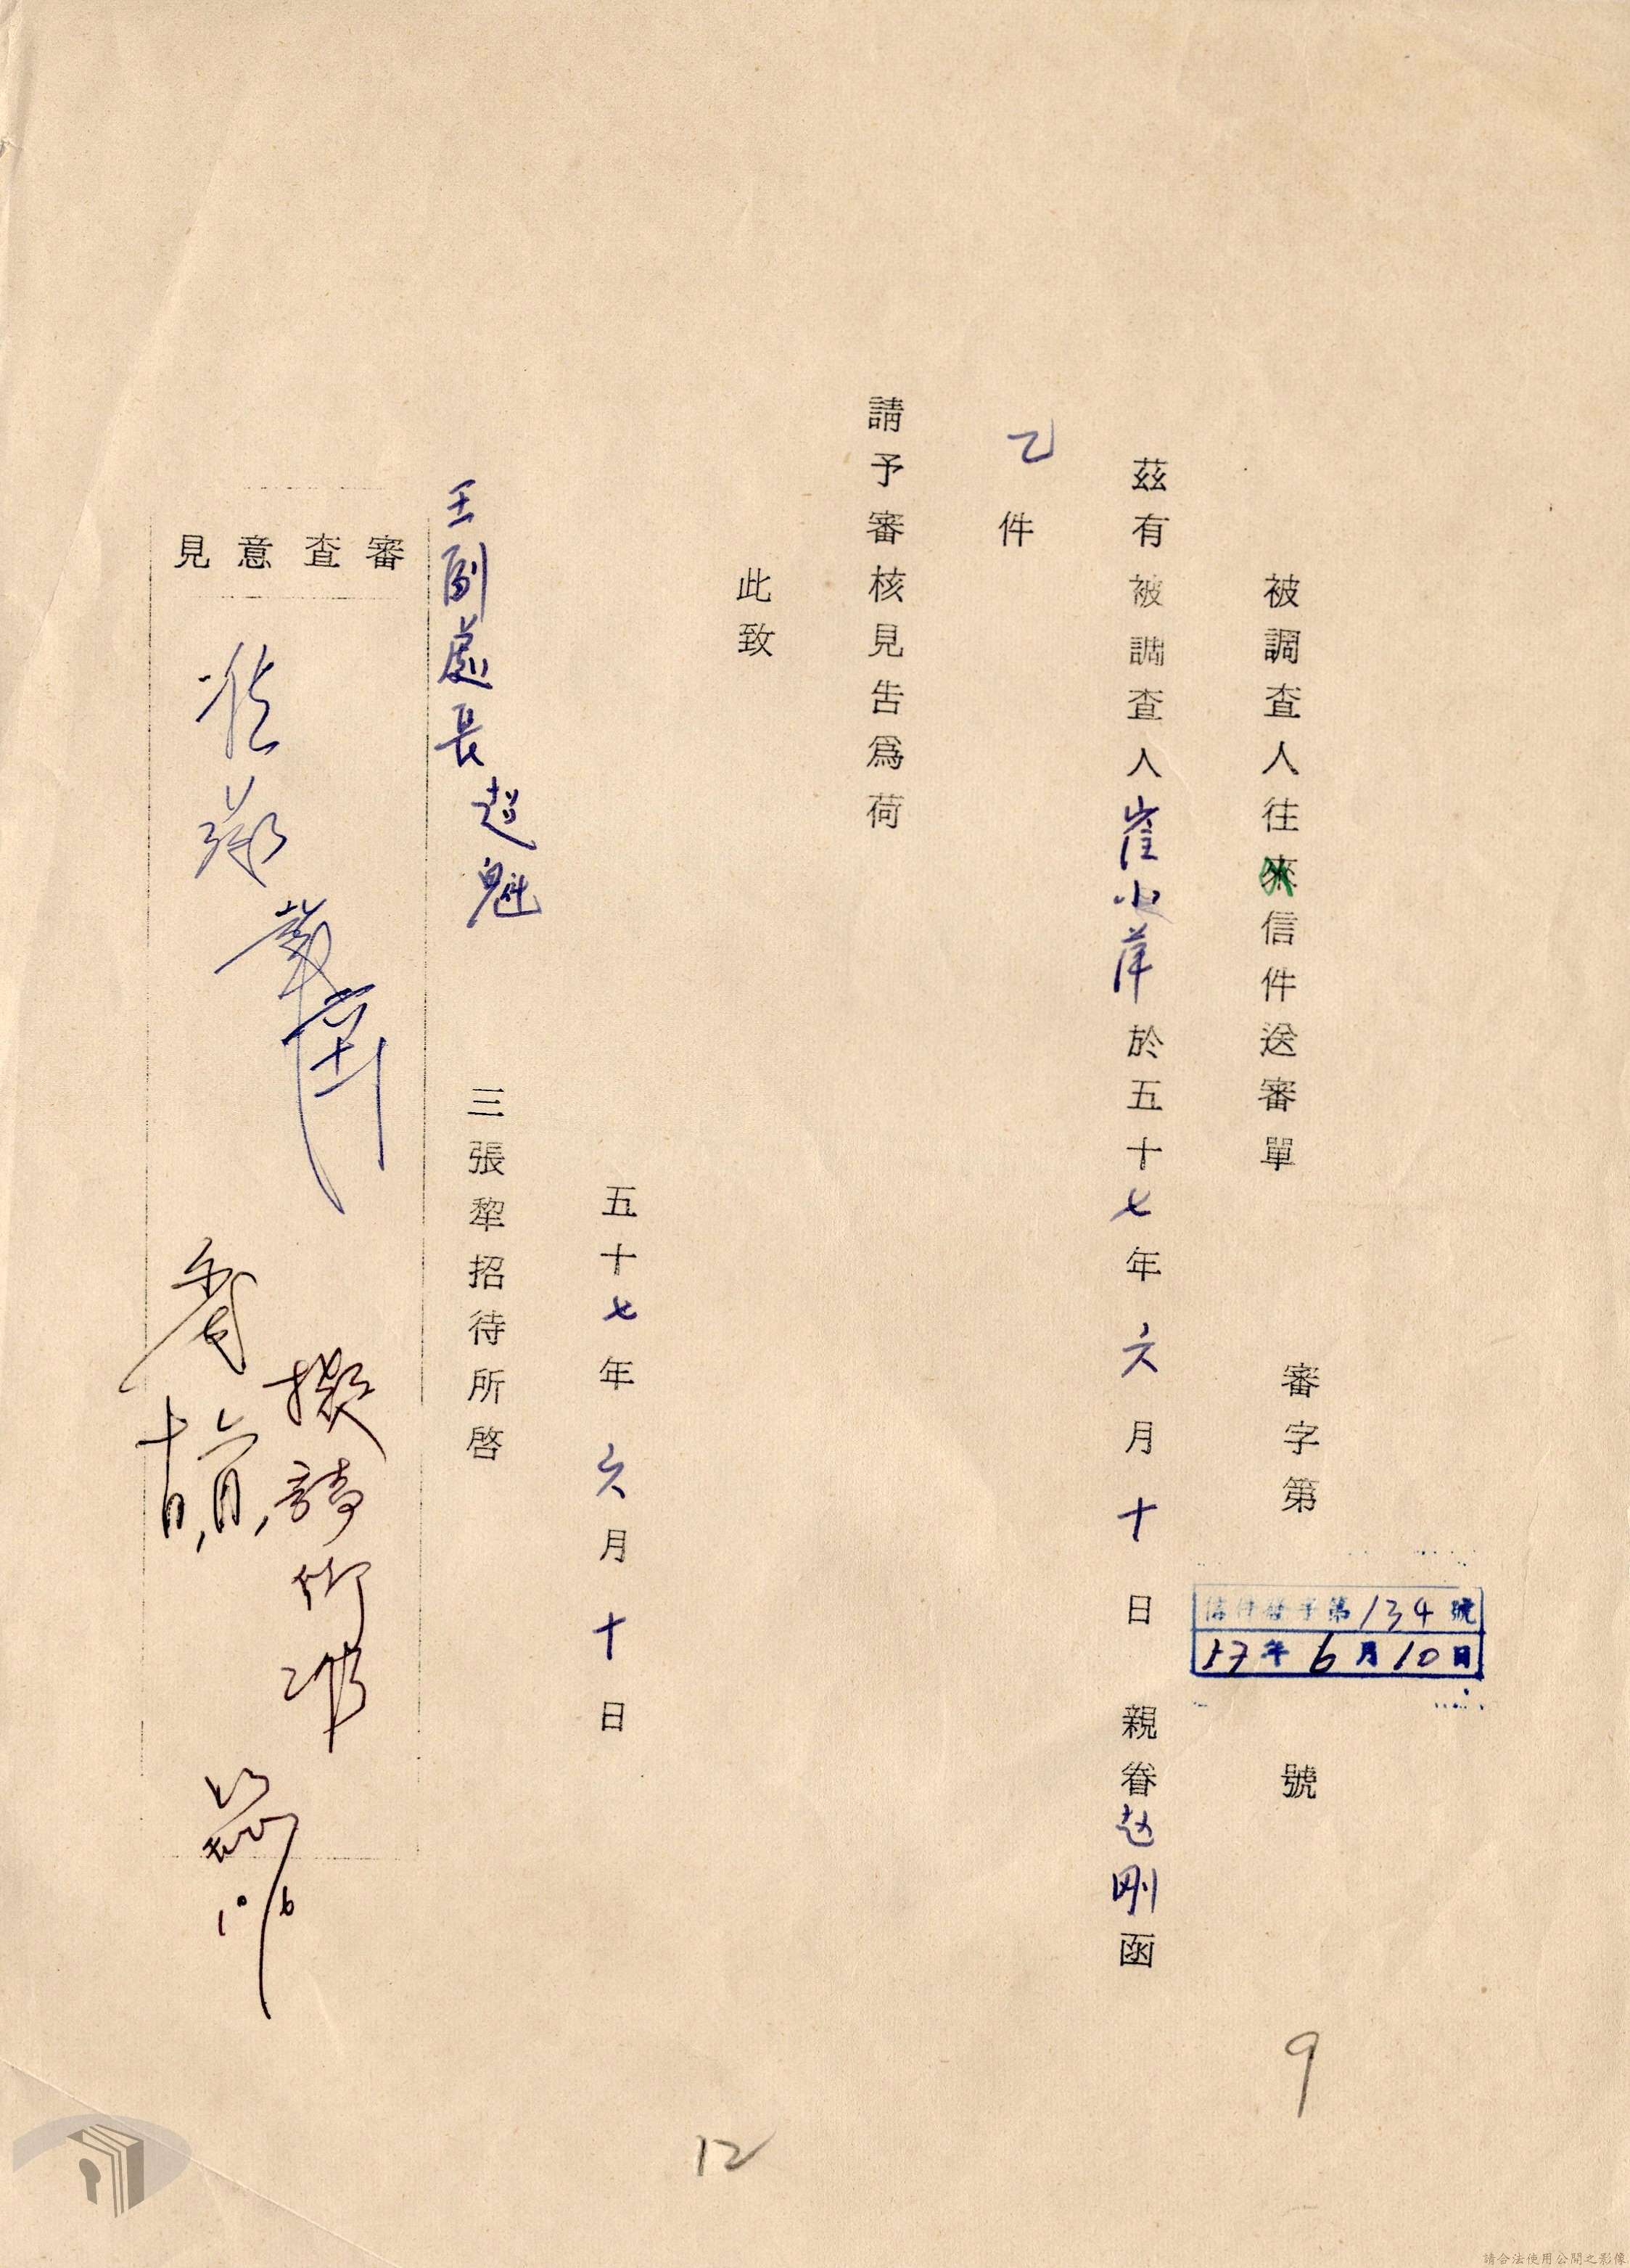 審字第
信件發字第134號
57年6月10日
號
被調查人往來信件送審單
茲有被調查人崔小萍於五十七年六月十日親眷趙剛函
乙件
請予審核見告為荷
此致
五十七年六月十日
三張犂招待所啓
王副處長超魁
審查意見
擬請
六月
十日
6/10
9
12
請合法使用公開之影像